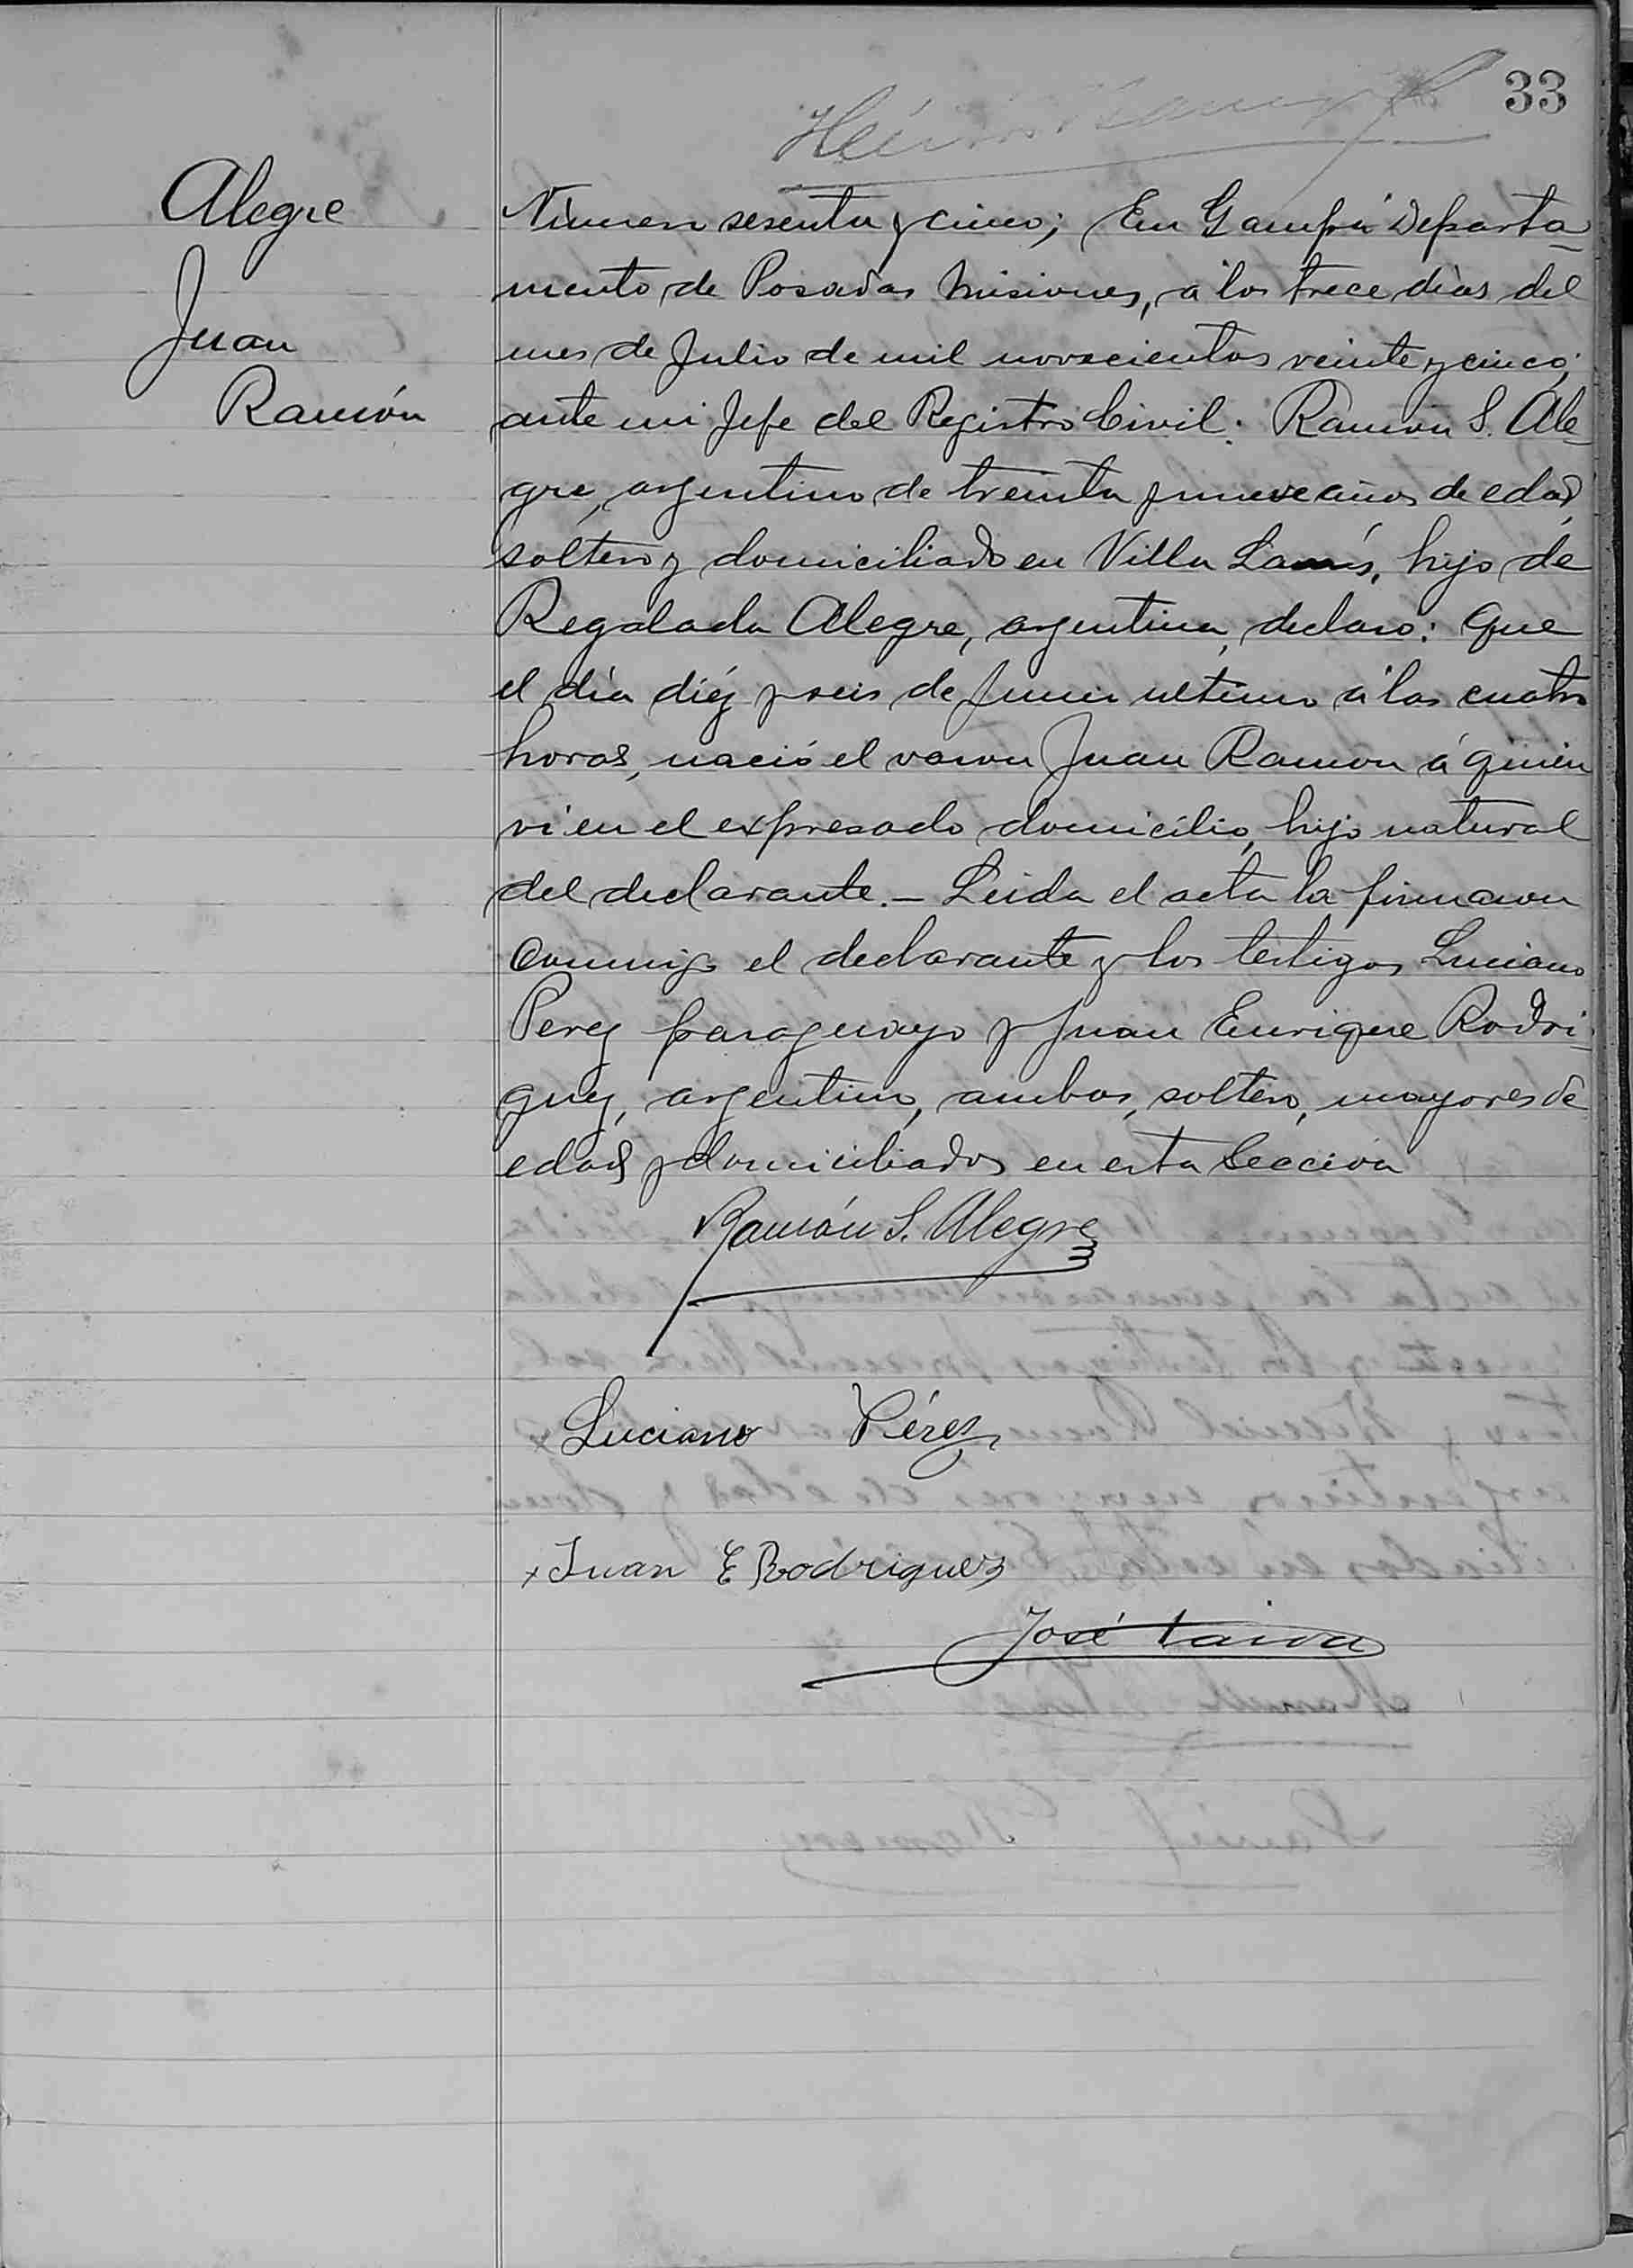 33
Alegre
Juan
Ramón
Número sesenta y cinco; En Garupá Departa-
mento de Posadas Misiones, á los trece dias del
mes de Julio de mil novecientos veinte y cinco;
ante mi Jefe del Registro Civil: Ramón S. Ale-
gre, argentino de treinta y nueve años de edad,
soltero y domiciliado en Villa Lanús, hijo de
Regalada Alegre, argentina, declaro: Que
el dia diéz y seis de Junio ultimo á las cuatro
horas, nació el varon Juan Ramon á quien
vi en el expresado domicilio, hijo natural
del declarante.- Leida el acta la firmaron
conmigo el declarante y los testigos Luciano
Perez paraguayo y Juan Enrique Rodri-
guez, argentino, ambos, soltero, mayores de
edad y domiciliados en esta Sección
Ramón S. Alegre
x Luciano Pérez
x Juan E Rodriguez
José